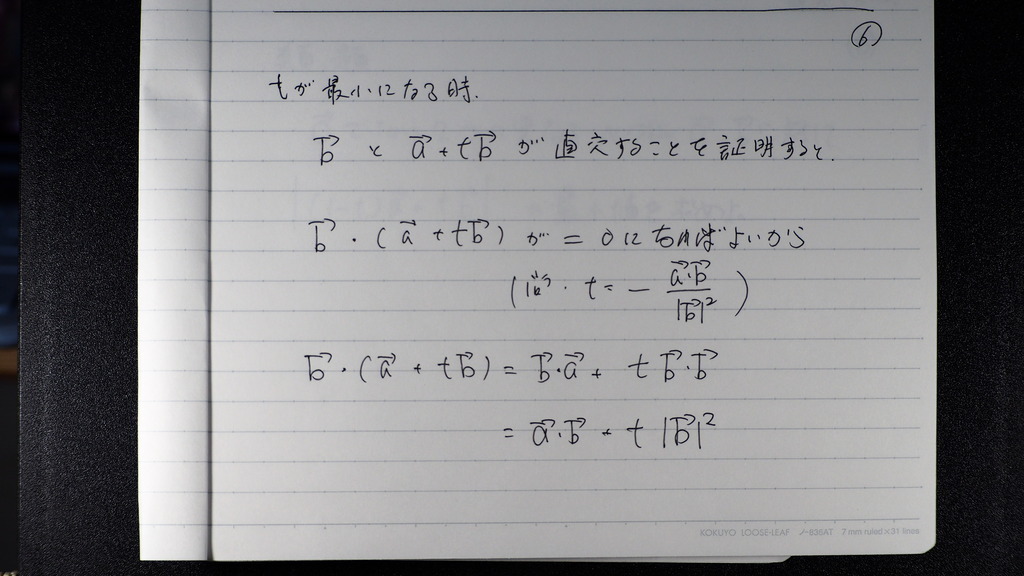 ⑥
tが最小になる時.
b⃗ と a⃗ + t b⃗ が 直交することを証明すると.
b⃗ ・ ( a⃗ + t b⃗ ) が = 0 になればよいから
( t = − a⃗・b⃗ / |b⃗|² )
b⃗ ・ ( a⃗ + t b⃗ ) = b⃗・a⃗ + t b⃗・b⃗
= a⃗・b⃗ + t |b⃗|²
KOKUYO LOOSE-LEAF ノ-836AT 7 mm ruled×31 lines